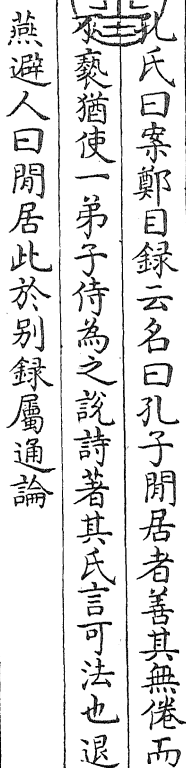 孔氏曰案鄭目録云名曰孔子閒居者善其無倦而
不褻猶使一弟子侍為之說詩著其氏言可法也退
燕避人曰閒居此於别録屬通論